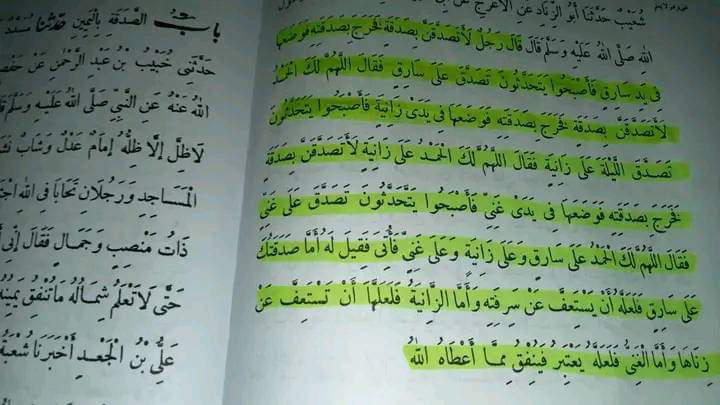 شُعَيْبٌ حَدَّثَنَا أَبُو الزِّنَادِ عَنِ الْأَعْرَجِ عَنْ
اللهِ صَلَّى اللهُ عَلَيْهِ وَسَلَّمَ قَالَ قَالَ رَجُلٌ لَأَتَصَدَّقَنَّ بِصَدَقَةٍ فَخَرَجَ بِصَدَقَتِهِ فَوَضَعَهَا
فِى يَدِ سَارِقٍ فَأَصْبَحُوا يَتَحَدَّثُونَ تُصُدِّقَ عَلَى سَارِقٍ فَقَالَ اللّٰهُمَّ لَكَ الْحَمْدُ
لَأَتَصَدَّقَنَّ بِصَدَقَةٍ فَخَرَجَ بِصَدَقَتِهِ فَوَضَعَهَا فِى يَدَىْ زَانِيَةٍ فَأَصْبَحُوا يَتَحَدَّثُونَ
تُصُدِّقَ اللَّيْلَةَ عَلَى زَانِيَةٍ فَقَالَ اللّٰهُمَّ لَكَ الْحَمْدُ عَلَى زَانِيَةٍ لَأَتَصَدَّقَنَّ بِصَدَقَةٍ
فَخَرَجَ بِصَدَقَتِهِ فَوَضَعَهَا فِى يَدَىْ غَنِىٍّ فَأَصْبَحُوا يَتَحَدَّثُونَ تُصُدِّقَ عَلَى غَنِىٍّ
فَقَالَ اللّٰهُمَّ لَكَ الْحَمْدُ عَلَى سَارِقٍ وَعَلَى زَانِيَةٍ وَعَلَى غَنِىٍّ فَأُتِىَ فَقِيلَ لَهُ أَمَّا صَدَقَتُكَ
عَلَى سَارِقٍ فَلَعَلَّهُ أَنْ يَسْتَعِفَّ عَنْ سَرِقَتِهِ وَأَمَّا الزَّانِيَةُ فَلَعَلَّهَا أَنْ تَسْتَعِفَّ عَنْ
زِنَاهَا وَأَمَّا الْغَنِىُّ فَلَعَلَّهُ يَعْتَبِرُ فَيُنْفِقُ مِمَّا أَعْطَاهُ اللهُ
بَابُ الصَّدَقَةِ بِالْيَمِينِ حَدَّثَنَا مُسَدَّدٌ
حَدَّثَنِى خُبَيْبُ بْنُ عَبْدِ الرَّحْمٰنِ عَنْ حَفْصِ
اللهُ عَنْهُ عَنِ النَّبِىِّ صَلَّى اللهُ عَلَيْهِ وَسَلَّمَ
لَا ظِلَّ إِلَّا ظِلُّهُ إِمَامٌ عَدْلٌ وَشَابٌّ
الْمَسَاجِدِ وَرَجُلَانِ تَحَابَّا فِى اللهِ
ذَاتُ مَنْصِبٍ وَجَمَالٍ فَقَالَ إِنِّى
حَتَّى لَا تَعْلَمَ شِمَالُهُ مَا تُنْفِقُ يَمِينُهُ
عَلِىُّ بْنُ الْجَعْدِ أَخْبَرَنَا شُعْبَةُ